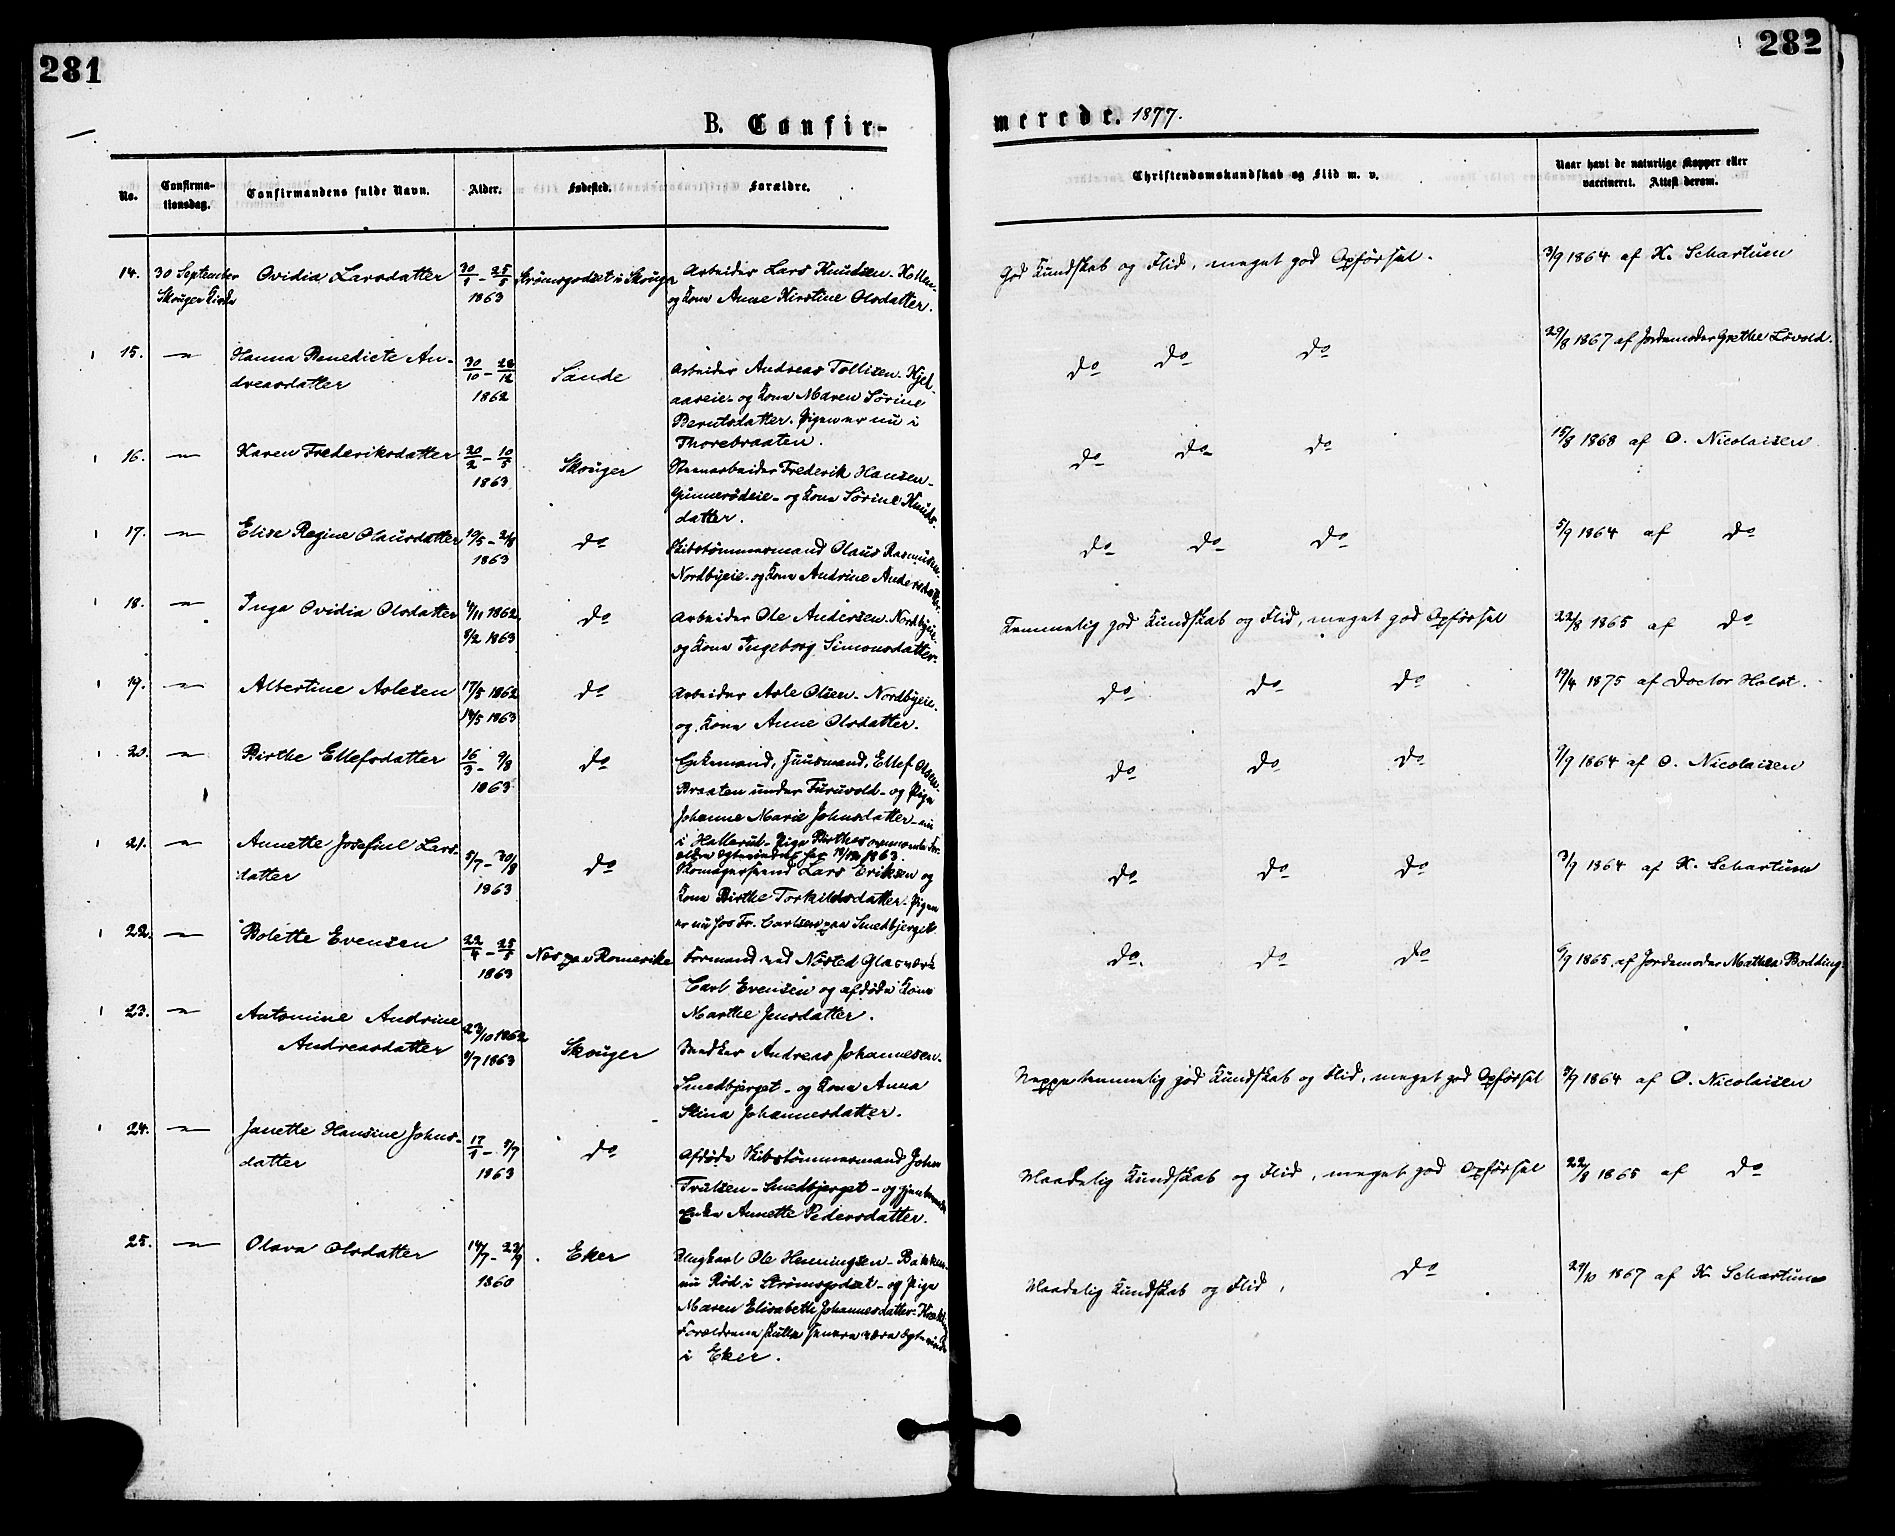 281
282
B. Confir-
merede. 1877.
No.
Confirma-
tionsdag.
Confirmandens fulde Navn.
Alder.
Fødested.
Forældre.
Christendomskundskab og Flid m. v.
Naar havt de naturlige Kopper eller
vaccineret. Attest derom.
14. 30 September Ovidia Larsdatter 30/1 - 25/5 Strømsgodset i Skouger Arbeider Lars Knudsen - Kollen -
Skouger Kirke 1863 og Kone Anne Kirstine Olsdatter.
God Kundskab og Flid, meget god Opførsel. 3/9 1864 af K. Schartuen
15. Hanna Benedicte An-
dreasdatter
30/10 - 28/12
1862
Sande
Arbeider Andreas Tollisen - Kjel-
aaseie - og Kone Maren Sørine
Berntsdatter. Pigen er nu i
Thorebraaten.
do do do 29/8 1867 af Jordemoder Grethe Løvold.
16. Karen Frederiksdatter 20/2 - 10/5
1863
Skouger
Steenarbeider Frederik Hansen -
Gunnerødeie - og Kone Sørine Knuds-
datter.
do do do 15/8 1868 af O. Nicolaisen
17. Elise Regine Olausdatter 19/5 - 2/8
1863
do
Skibstømmermand Olaus Rasmussen
Nordbyeie - og Kone Andrine Andersdatter
do do do 5/9 1864 af do
18. Inga Ovidia Olsdatter 4/11 1862
8/2 1863
do
Arbeider Ole Andersen - Nordbyeie -
og Kone Ingeborg Simonsdatter.
Temmelig god Kundskab og Flid, meget god Opførsel 22/8 1865 af do
19. Albertine Aslesen 17/5 1862
14/5 1863
do
Arbeider Asle Olsen - Nordbyeie -
og Kone Anne Olsdatter.
do do do 19/4 1875 af Doctor Holst.
20. Birthe Ellefsdatter 16/3 - 9/8
1863
do
Enkemand, Huusmand, Ellef Olsen -
Braaten under Furuvold - og Pige
Johanne Marie Johnsdatter - nu
i Hallerud - Pige Birthes
1863.
do do do 7/9 1864 af O. Nicolaisen
21. Annette Josefine Lars-
datter
5/7 - 30/8
1863
do
Skomagersvend Lars Eriksen og
Kone Birthe Torkildsdatter - Pigen
er nu hos Fr. Carlsen paa Smedbjerget.
do do do 3/9 1864 af K. Schartuen
22. Bolette Evensen 22/4 - 25/5
1863
Næs paa Romerike
Formand ved Nøsted Glasværk
Carl Evensen og afdøde Kone
Marthe Jensdatter.
do. do do 6/9 1865 af Jordemoder Mathea Bodding
23. Antomine Andrine
Andreasdatter
23/10 1862
5/7 1863
Skouger
Snedker Andreas Johannesen -
Smedbjerget - og Kone Anna
Stina Johannesdatter.
Neppe temmelig god Kundskab og Flid, meget god Opførsel 5/9 1864 af O. Nicolaisen
24. Janette Hansine Johns-
datter
17/1 - 5/7
1863
do
Afdøde Skibstømmermand John
Trulsen - Smedbjerget - og gjenlevende
Enke Annette Pedersdatter.
Maadelig Kundskab og Flid, meget god Opførsel 22/8 1865 af do
25. Olava Olsdatter 14/7 - 23/9
1860
Eker
Ungkarl Ole Henningsen - Bakken -
nu Rød i Strømsgodset - og Pige
Maren Elisabeth Johannesdatter
Forældrene skulle senere være ægteviede
i Eker.
Maadelig Kundskab og Flid, do 29/10 1867 af K. Schartum